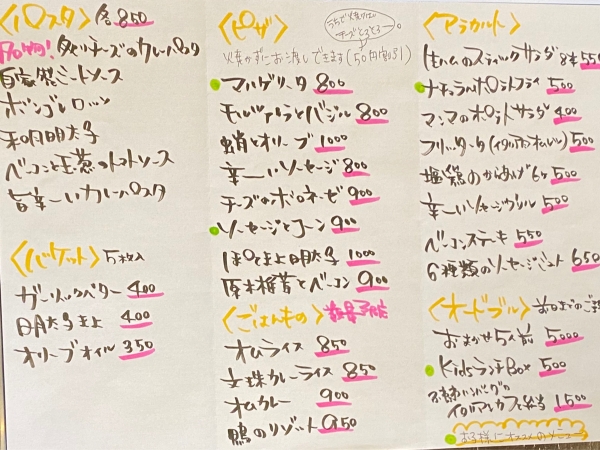 〈パスタ〉各850
自家製ミートソース
ボンゴレロッソ
和風明太子
ベーコンと玉葱のトマトソース
旨辛ーいカレーパスタ
〈バケット〉5枚入
ガーリックバター 400
明太子まよ 400
オリーブオイル 350
〈ピザ〉
うちで焼けば
チーズとろとろ
焼かずにお渡しできます(50円割引)
マルゲリータ 800
モッツァレラとバジル 800
蛸とオリーブ 1000
辛ーいソーセージ 800
チーズのボロネーゼ 900
ソーセージとコーン 900
ぽてとまよ明太子 1000
原木椎茸とベーコン 900
〈ごはんもの〉数量限定
オムライス 850
文珠カレーライス 850
オムカレー 900
鴨のリゾット 950
〈アラカルト〉
生ハムのスティックサラダ 8本 550
ナチュラルポテトフライ 500
マンマのポテトサラダ 400
フリッタータ(イタリアオムレツ) 500
塩鶏のからあげ 6ケ 500
辛ーいソーセージグリル 500
ベーコンステーキ 550
6種類のソーセージ 650
〈オードブル〉前日までのご
おまかせ5人前 5000
Kidsランチ Box 500
1500
お子様にオススメのメニュー